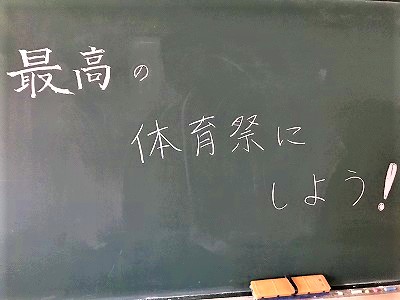 最高の
体育祭に
しよう!